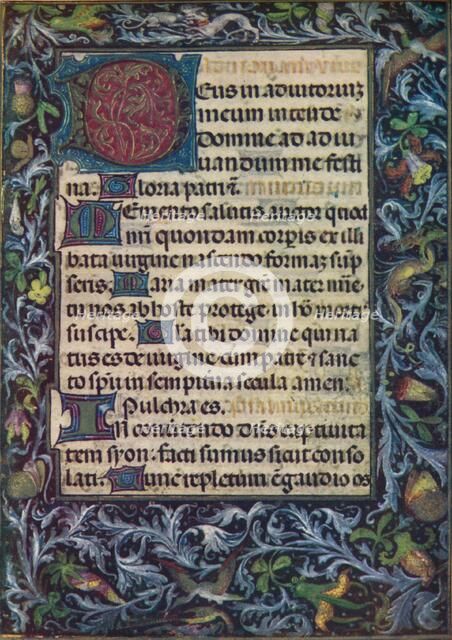 Deus in adiutorium
meum intende
Domine ad adiu
uandum me festi
na: Gloria patri &
Memento salutis auctor quod
nr̄i quondam corporis ex illi
bata uirgine nascendo formam sūp
seris. Maria mater gr̄e mater mīe
tu nos ab hoste protege in hora mortis
suscipe. Gloria tibi domine qui na
tus es de uirgine cum patri & sanc
to spū in sempiterna secula amen.
Pulchra es.
In conuertendo dn̄s captiuita
tem syon: facti sumus sicut conso
lati. Tunc repletum ē gaudio os
heritage
Heritage